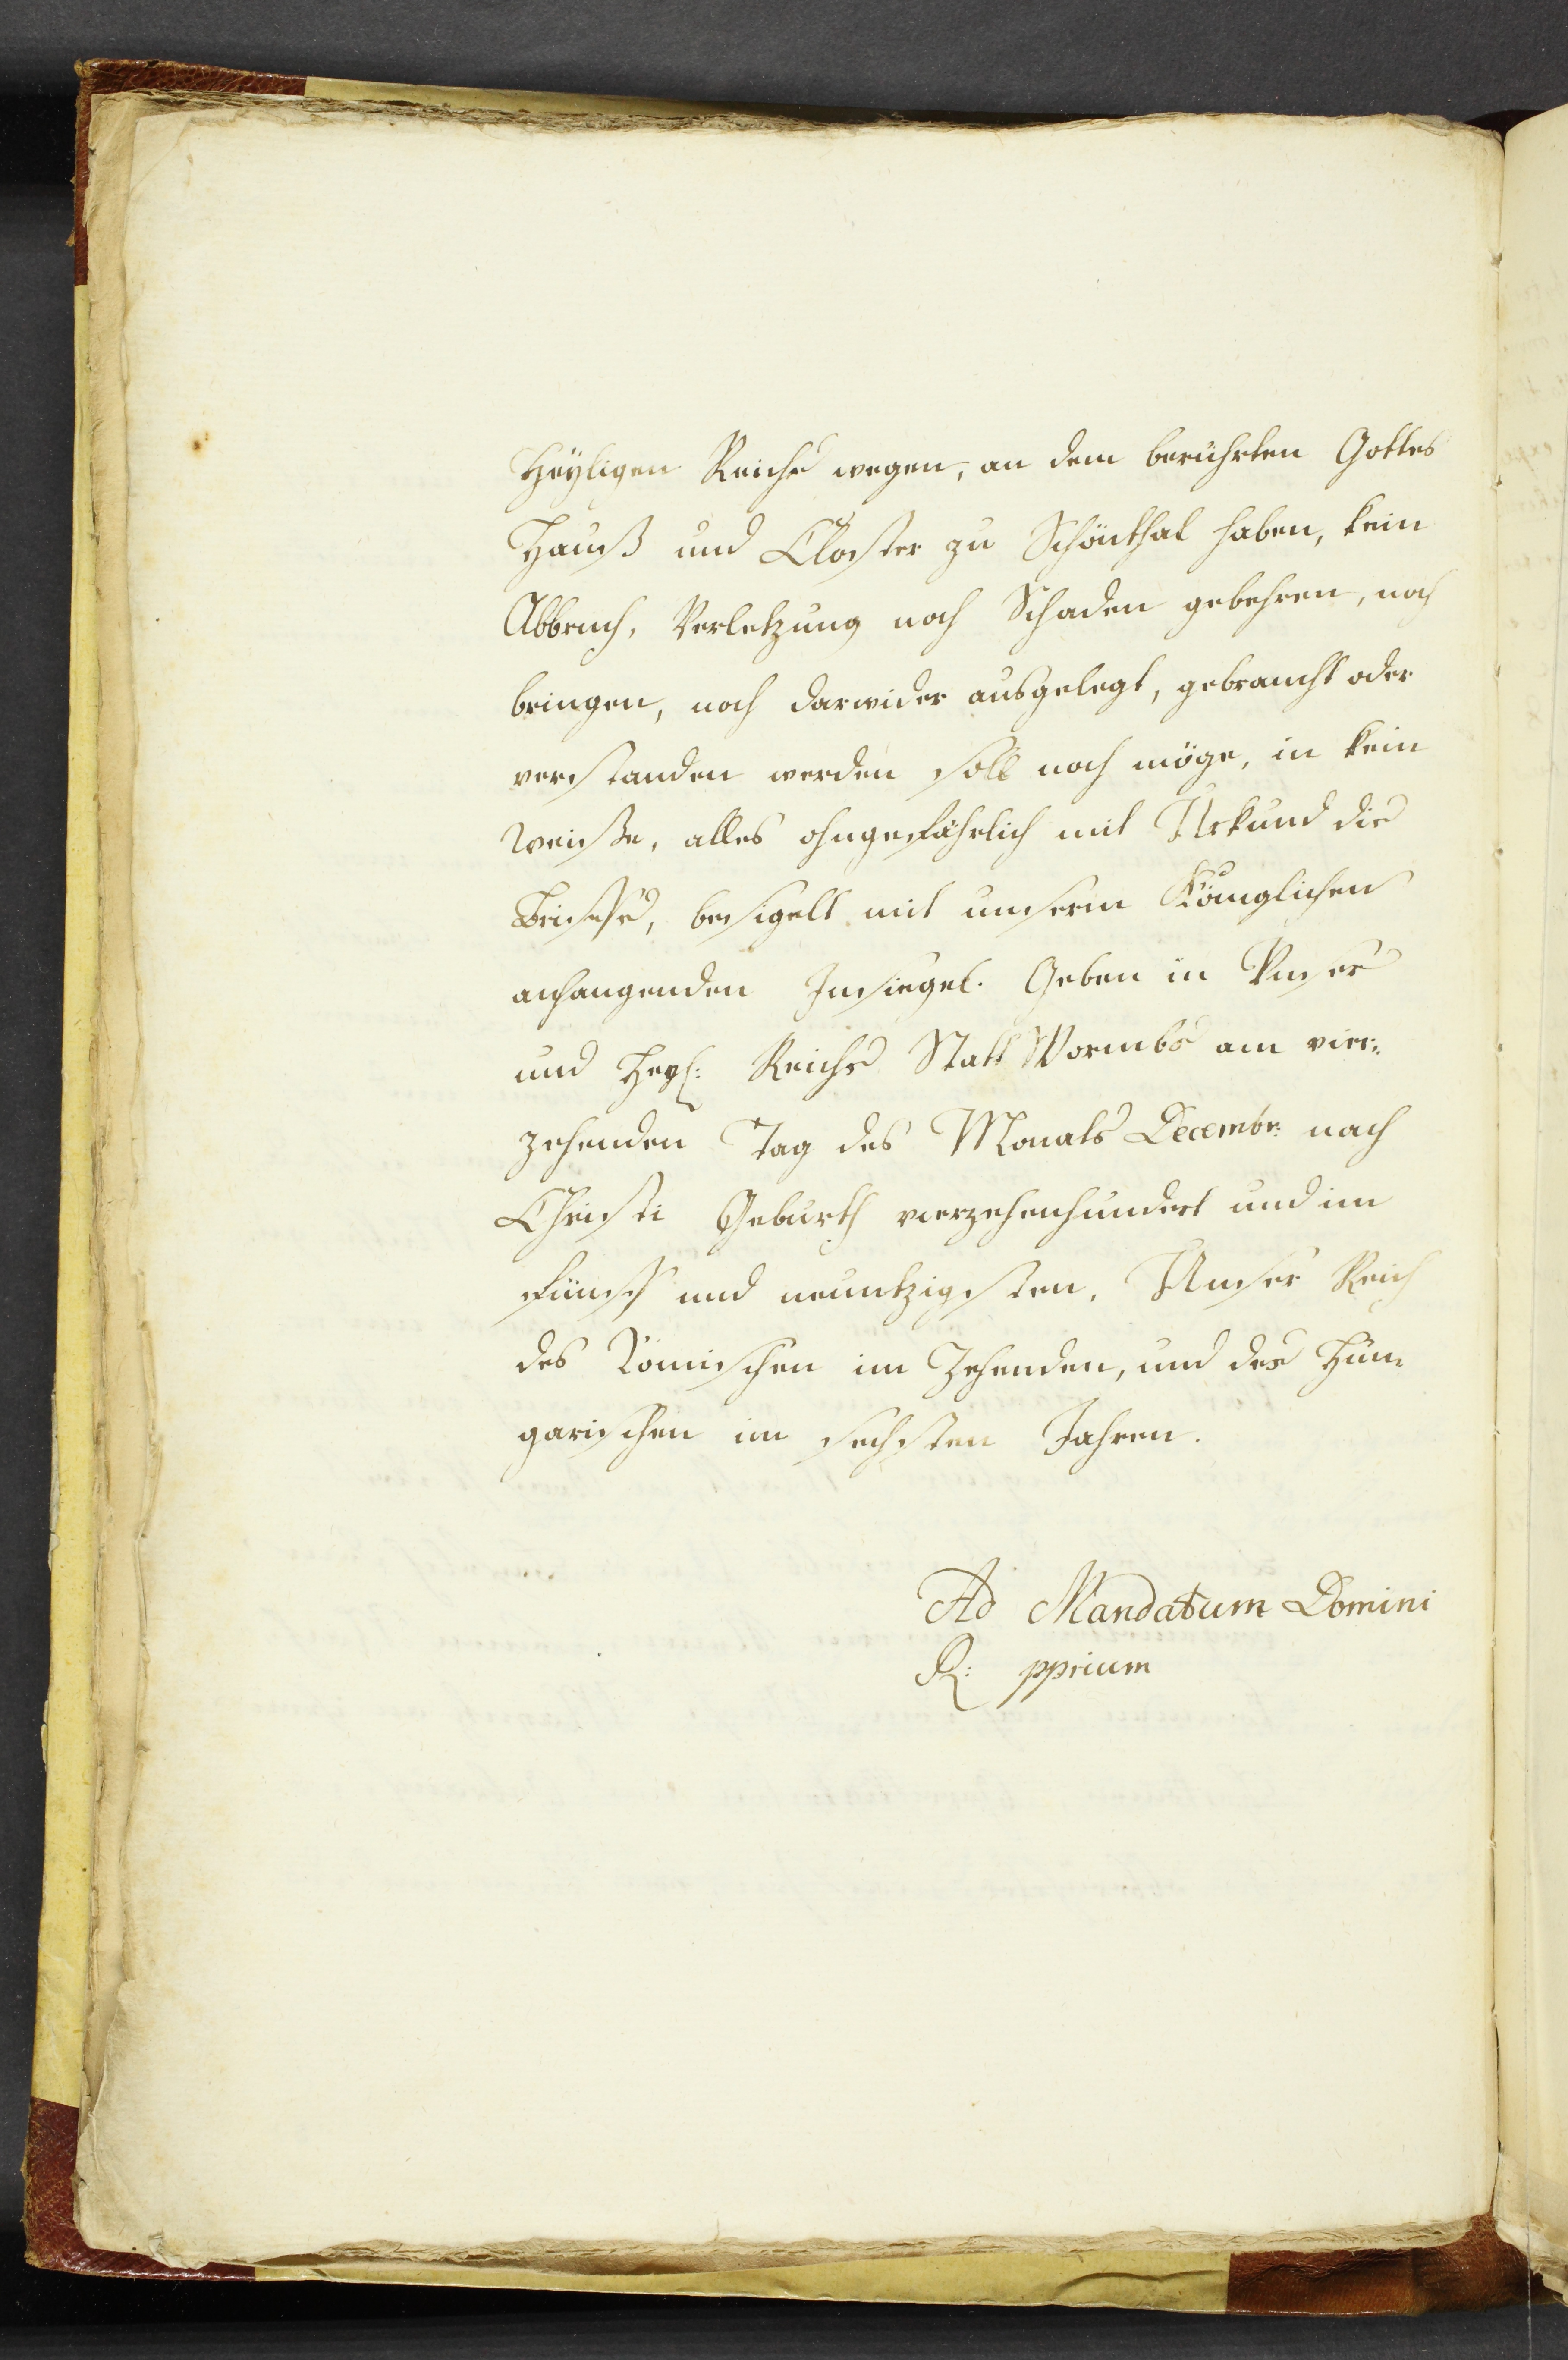 Heyligen Reichs wegen, an dem berührten Gottes
Hauß und Closter zu Schönthal haben, kein
Abbruch, Verletzung noch Schaden gebehren, noch
bringen, noch darwider ausgelegt, gebraucht oder
verstanden werden soll noch möge, in kein
weiße, alles ohngefährlich mit Urkund dis
Brieffs, besigelt mit unserm Königlichen
anhangenden Insiegel. Geben in Unser
und Heyl: Reichs Statt Wormbs am vier-
zehenden Tag des Monats Decembr: nach
Christi Geburth vierzehenhundert und im
fünff und neuntzigsten, Unser Reich
des Römischen im Zehenden, und des Hun-
garischen im sechsten Jahren.
Ad Mandatum Domini
R: pprium